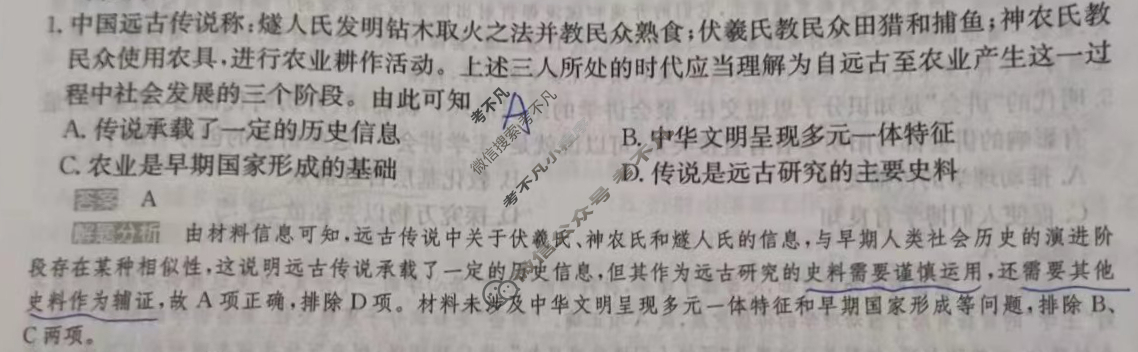 1. 中国远古传说称:燧人氏发明钻木取火之法并教民众熟食;伏羲氏教民众田猎和捕鱼;神农氏教
民众使用农具,进行农业耕作活动。上述三人所处的时代应当理解为自远古至农业产生这一过
程中社会发展的三个阶段。由此可知 A
A. 传说承载了一定的历史信息 B. 中华文明呈现多元一体特征
C. 农业是早期国家形成的基础 D. 传说是远古研究的主要史料
答案 A
解题分析 由材料信息可知,远古传说中关于伏羲氏、神农氏和燧人氏的信息,与早期人类社会历史的演进阶
段存在某种相似性,这说明远古传说承载了一定的历史信息,但其作为远古研究的史料需要谨慎运用,还需要其他
史料作为辅证,故 A 项正确,排除 D 项。材料未涉及中华文明呈现多元一体特征和早期国家形成等问题,排除 B、
C 两项。
考不凡
微信搜索考不凡